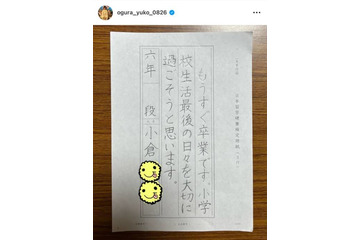 ogura_yuko_0826
もうすぐ卒業です。小学
校生活最後の日々を大切に
過ごそうと思います。
六年 段 小倉